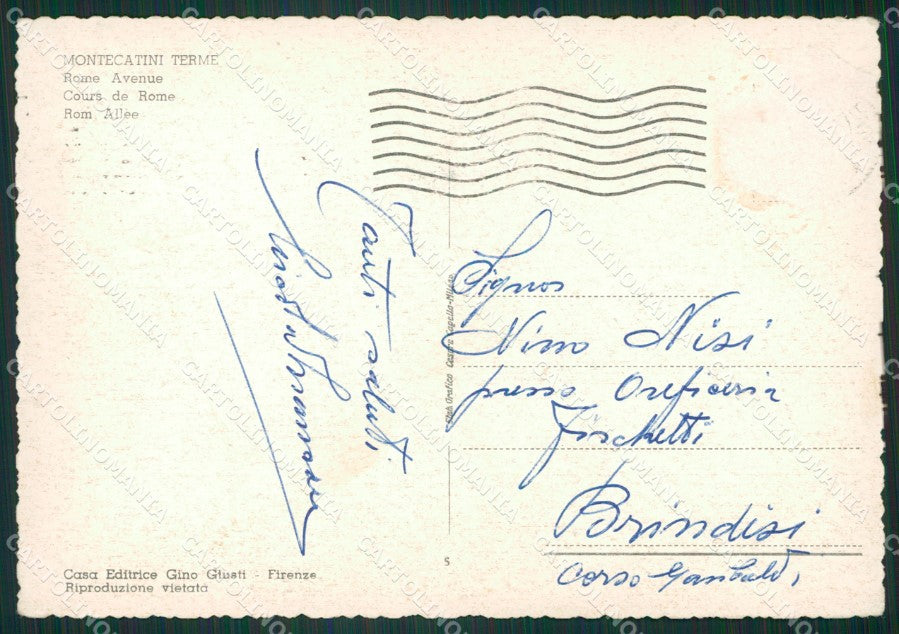 MONTECATINI TERME
Rome Avenue
Cours de Rome
Rom Allée
Tanti saluti
Signor
Nino Nisi
presso Oreficeria
Fischetti
Brindisi
Corso Garibaldi
Casa Editrice Gino Giusti - Firenze
Riproduzione vietata
S
CARTOLINOMANIA